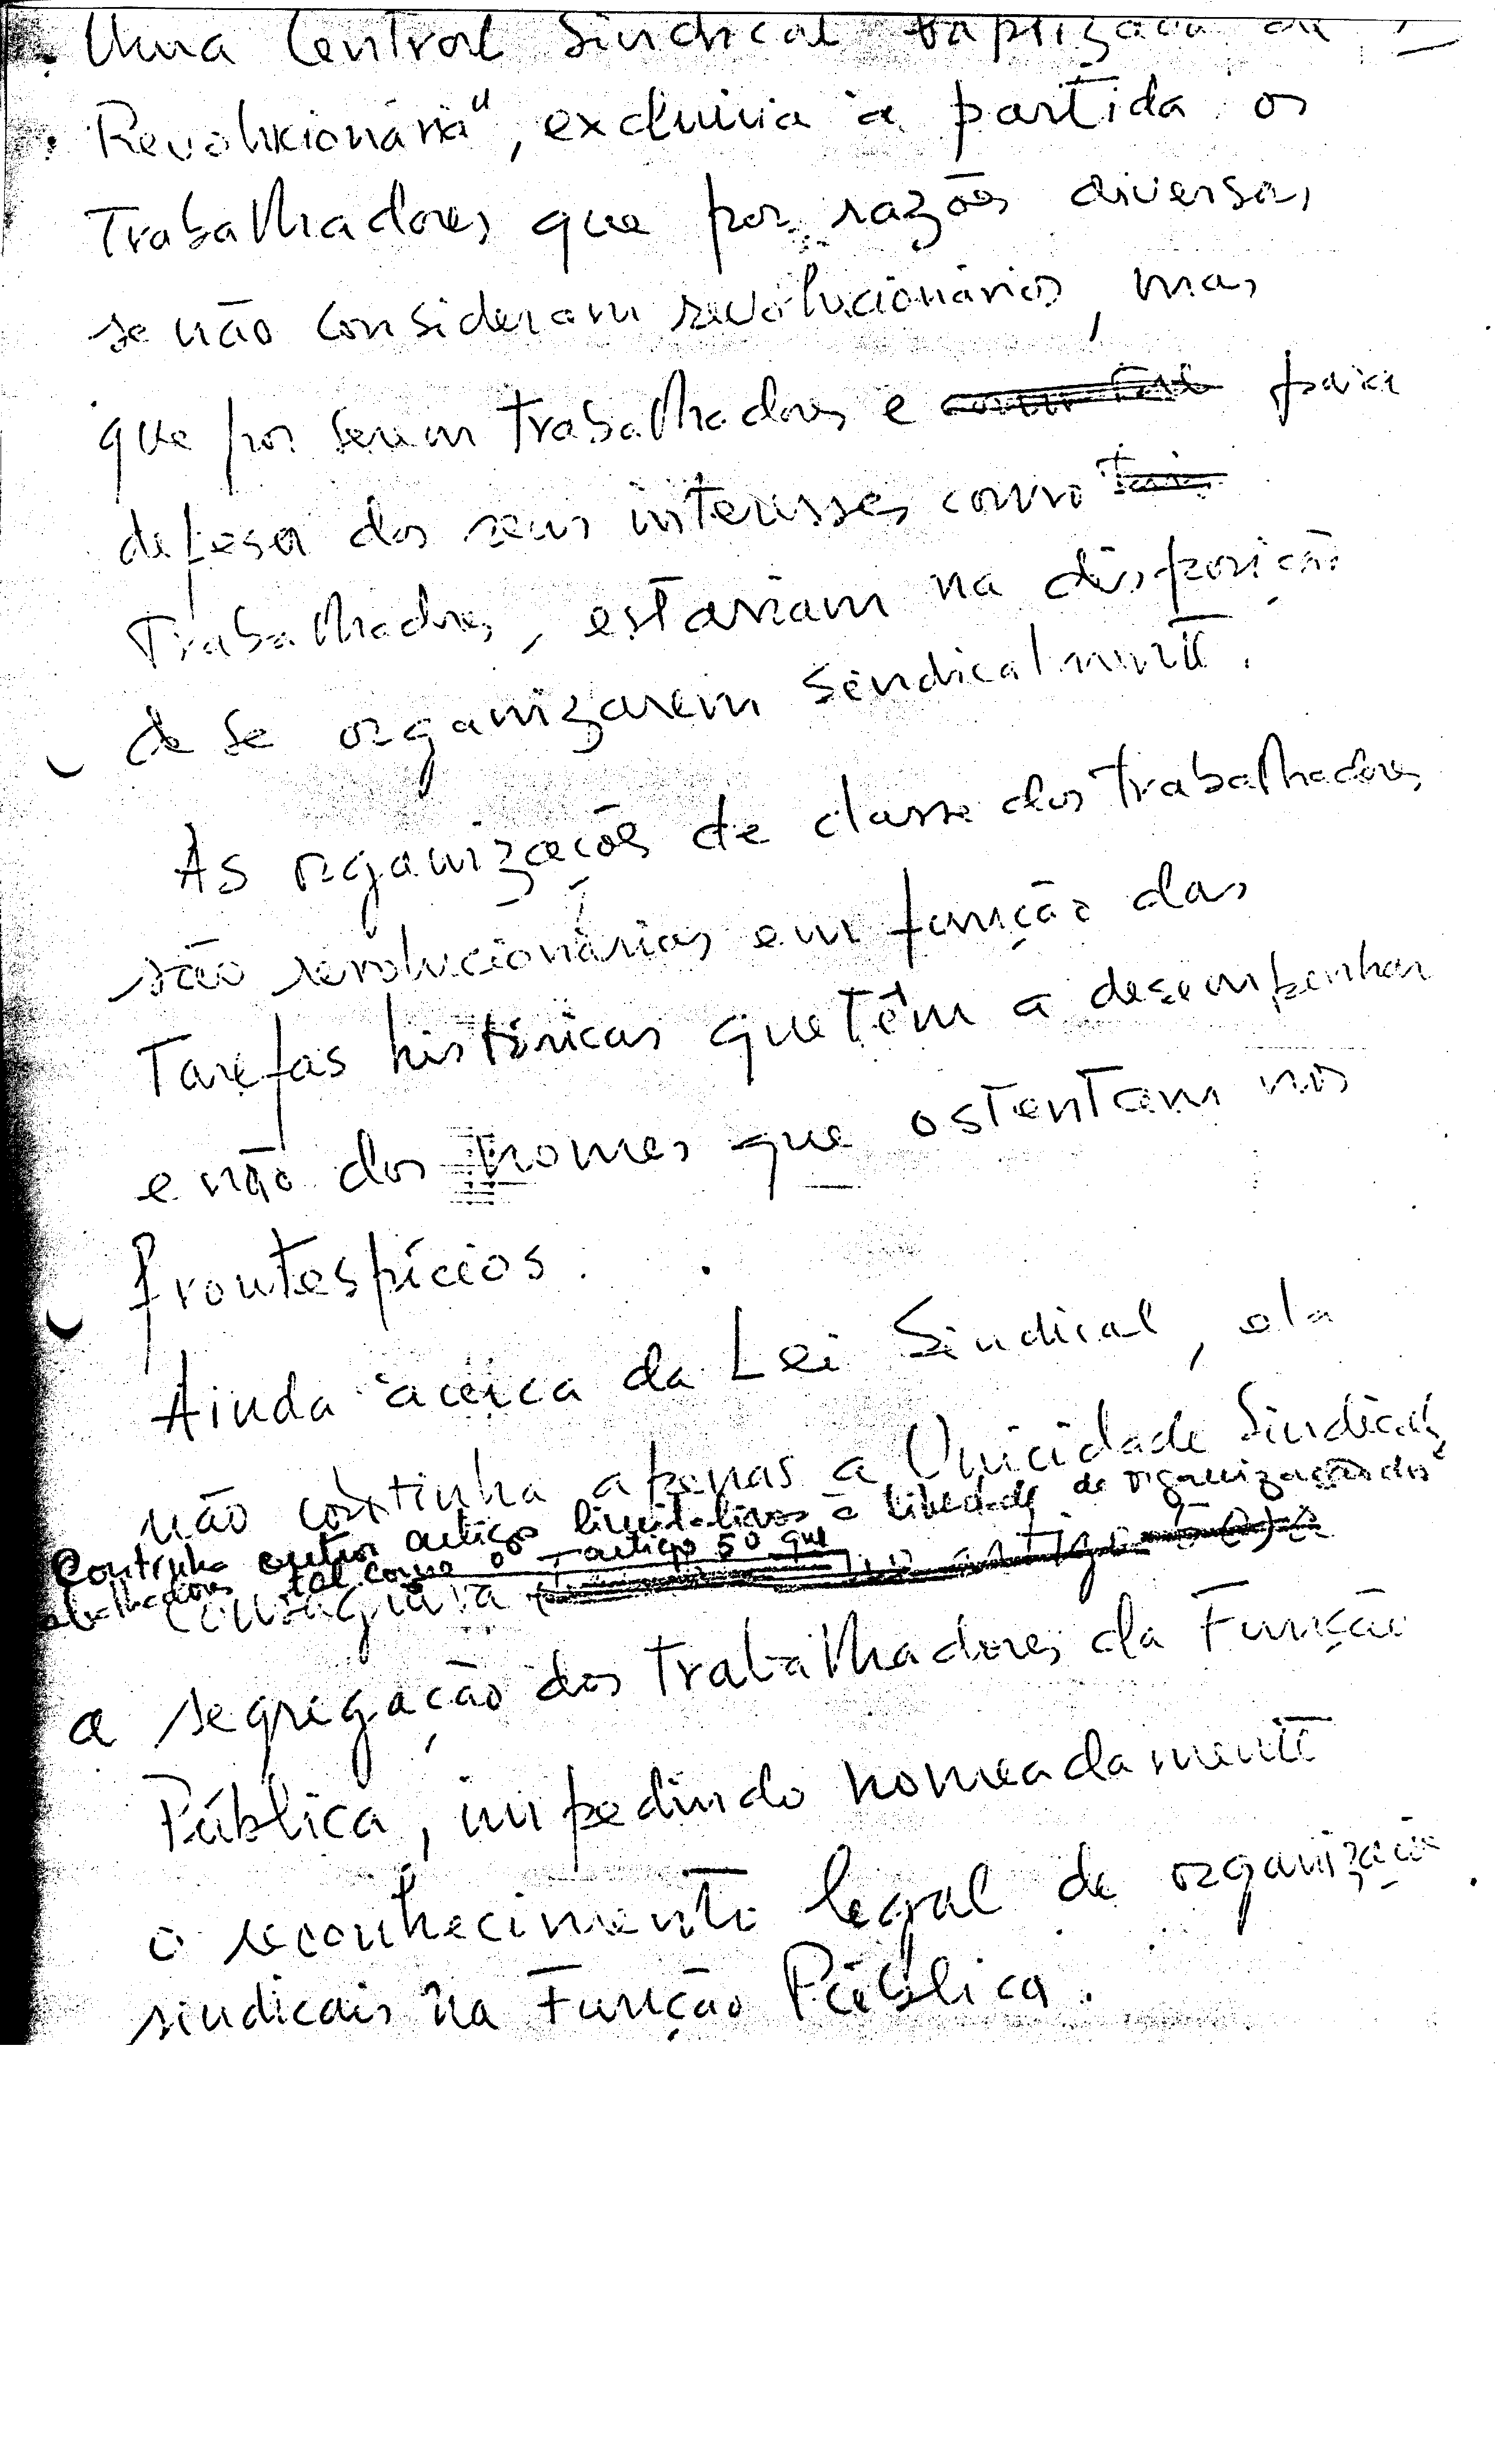 Uma Central Sindical baptizada de
Revolucionária", excluiria à partida os
Trabalhadores que por razões diversas
se não consideram revolucionários, mas
que por serem trabalhadores e para
defesa dos seus interesses como
Trabalhadores, estariam na disposição
de se organizarem sindicalmente.
As organizações de classe dos trabalhadores
são revolucionárias em função das
Tarefas históricas que têm a desempenhar
e não dos nomes que ostentam nos
frontespícios.
Ainda àcerca da Lei Sindical, ela
não continha apenas a Unicidade Sindical,
Continha outros artigos limitativos à liberdade de organização dos
trabalhadores tal como o artigo 5º que
consagrava
a segregação dos trabalhadores da Função
Pública, impedindo nomeadamente
o reconhecimento legal de organização
sindicais na Função Pública.